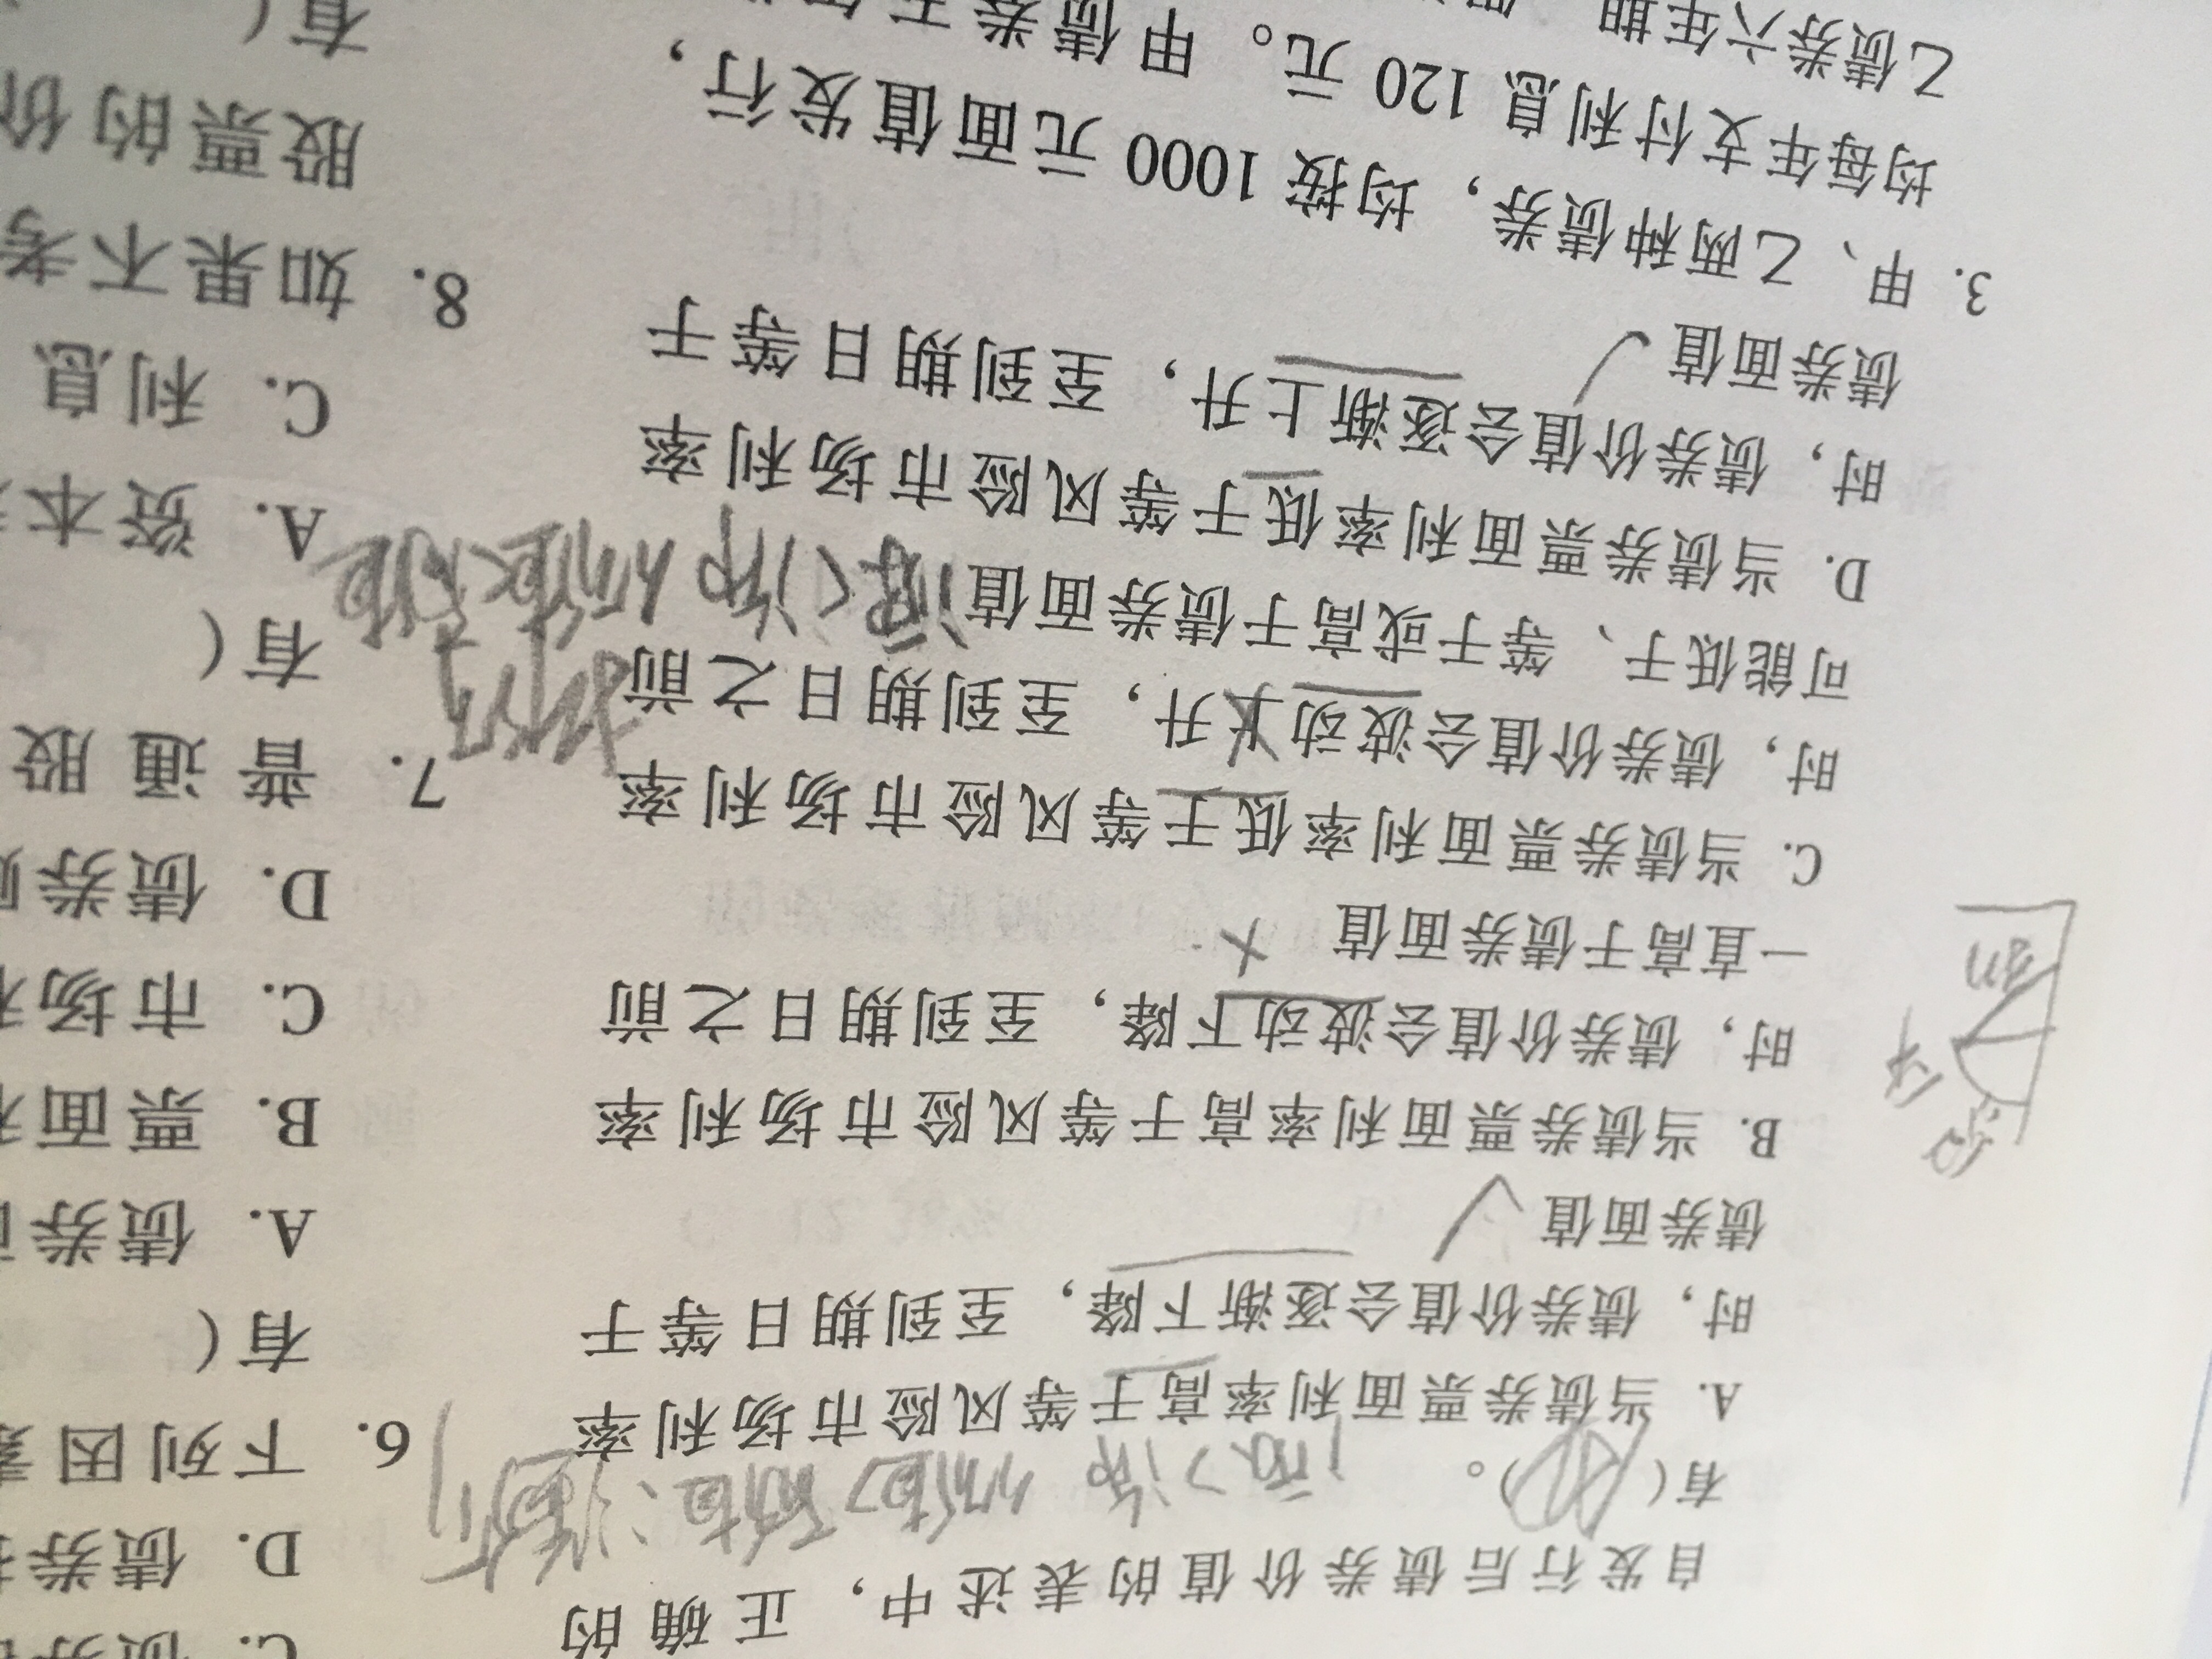 自发行后债券价值的表述中，正确的
有（　）。
A. 当债券票面利率高于等风险市场利率
时，债券价值会逐渐下降，至到期日等于
债券面值
B. 当债券票面利率高于等风险市场利率
时，债券价值会波动下降，至到期日之前
一直高于债券面值
C. 当债券票面利率低于等风险市场利率
时，债券价值会波动上升，至到期日之前
可能低于、等于或高于债券面值
D. 当债券票面利率低于等风险市场利率
时，债券价值会逐渐上升，至到期日等于
债券面值
3. 甲、乙两种债券，均按 1000 元面值发行，
均每年支付利息 120 元。甲债券五年
乙债券六年期
C. 债券
D. 债券
6. 下列因素
有（
A. 债券
B. 票面
C. 市场
D. 债券
7. 普通股
有（
A. 资本
C. 利息
8. 如果不考
股票的价
有（